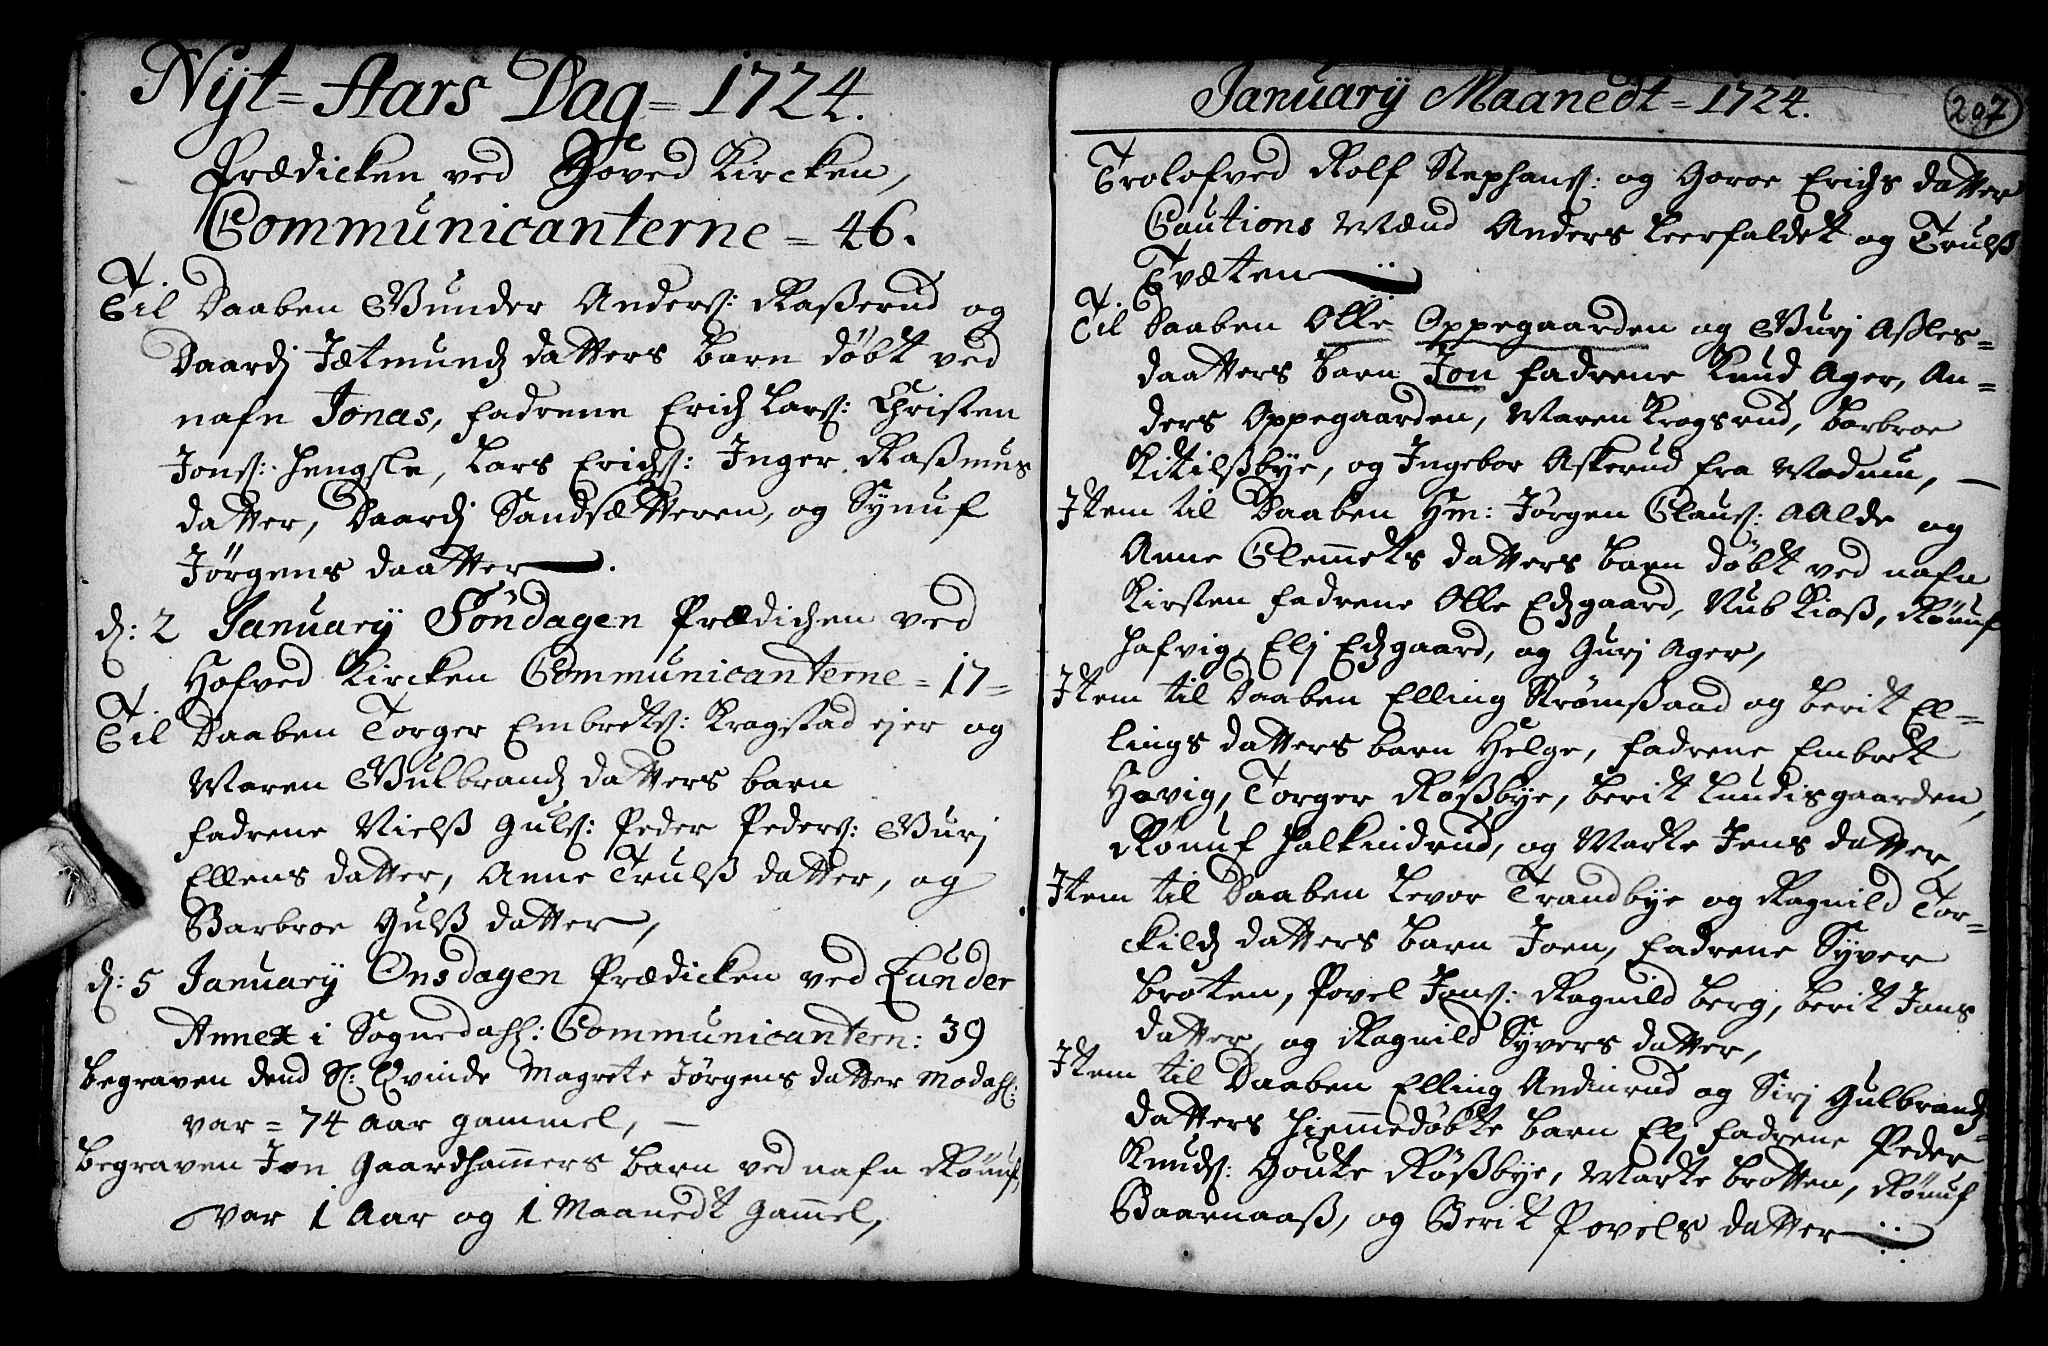 Nÿt=Aars Dag=1724.
Prædicken ved Hoved Kircken,
Communicanterne = 46.
T.
Til Daaben Gunder Anders: Raßerud og
Baardj Jætmundz datters barn døbt ved
nafn Jonas, fadrene Erich Lars: Christen
Jons: Hengsle, Lars Erichs: Inger Raßmus
datter, Baardj Sandsætteren, og Synuf
Jørgens daatter.
d: 2 Januarÿ Søndagen Prædichen ved
Hofved Kircken Communicanterne = 17=
T.
Til Daaben Torger Embrets: Kragstad ejer og
Maren Gulbrandz datters barn
fadrene Nielß Guls: Peder Peders: Gurj
Ellens datter, Anne Trulß datter, og
Barbroe Gulß datter,
d: 5 Januarÿ Onsdagen Prædicken ved Lunder
Annex i Sognedahl: Communicantern: 39
begraven dend Sl: Qvinde Magrete Jørgens datter Modahl:
var = 74 Aar gammel,
begraven Jon Gaardhamers barn ved nafn Rønuf,
var 1 Aar og 1 Maanedt Gamel,
Januarÿ Maanedt = 1724.
207
Trolofved Rolf Stephans: og Goroe Erichs datter
Cautions Mænd Anders Leerfaldet og Trulß
Tvæten
T.
Til Daaben Olle Oppegaarden og Gurj Aßles=
daatters barn Jon fadrene Knud Ager, An=
ders Oppegaarden, Maren Kragsrud, barbroe
Kitilßbÿe, og Ingebor Askerud fra Modum,
Item til Daaben Hm: Jørgen Clauss: AAlde og
Anne Clemets datters barn døbt ved nafn
Kirsten fadrene Olle Edzgaard, Nub Kioß, Rønuf
Hafvig, Elj Edzgaard, og Gurj Ager,
Item til Daaben Elling Strømßaad og berit El=
lings datters barn Helge, fadrene Embret
Hovig, Torger Røßbÿe, berit Lundisgaarden,
Rønuf Halkindrud, og Marte Jens datter,
Item til Daaben Levor Trandbÿe og Ragnild Tor=
ckildz datters barn Joen, fadrene Syver
broten, Povel Jons: Ragnild berg, berit Jans
datter, og Ragnild Syvers datter,
Item til Daaben Elling Andinrud og Sirj Gulbrandz=
datters hiemedøbte barn Elj fadrene Peder
Knuds: Houke Røßbÿe, Marte brotten, Rønuf
Baarnaaß, og Berit Povels datter